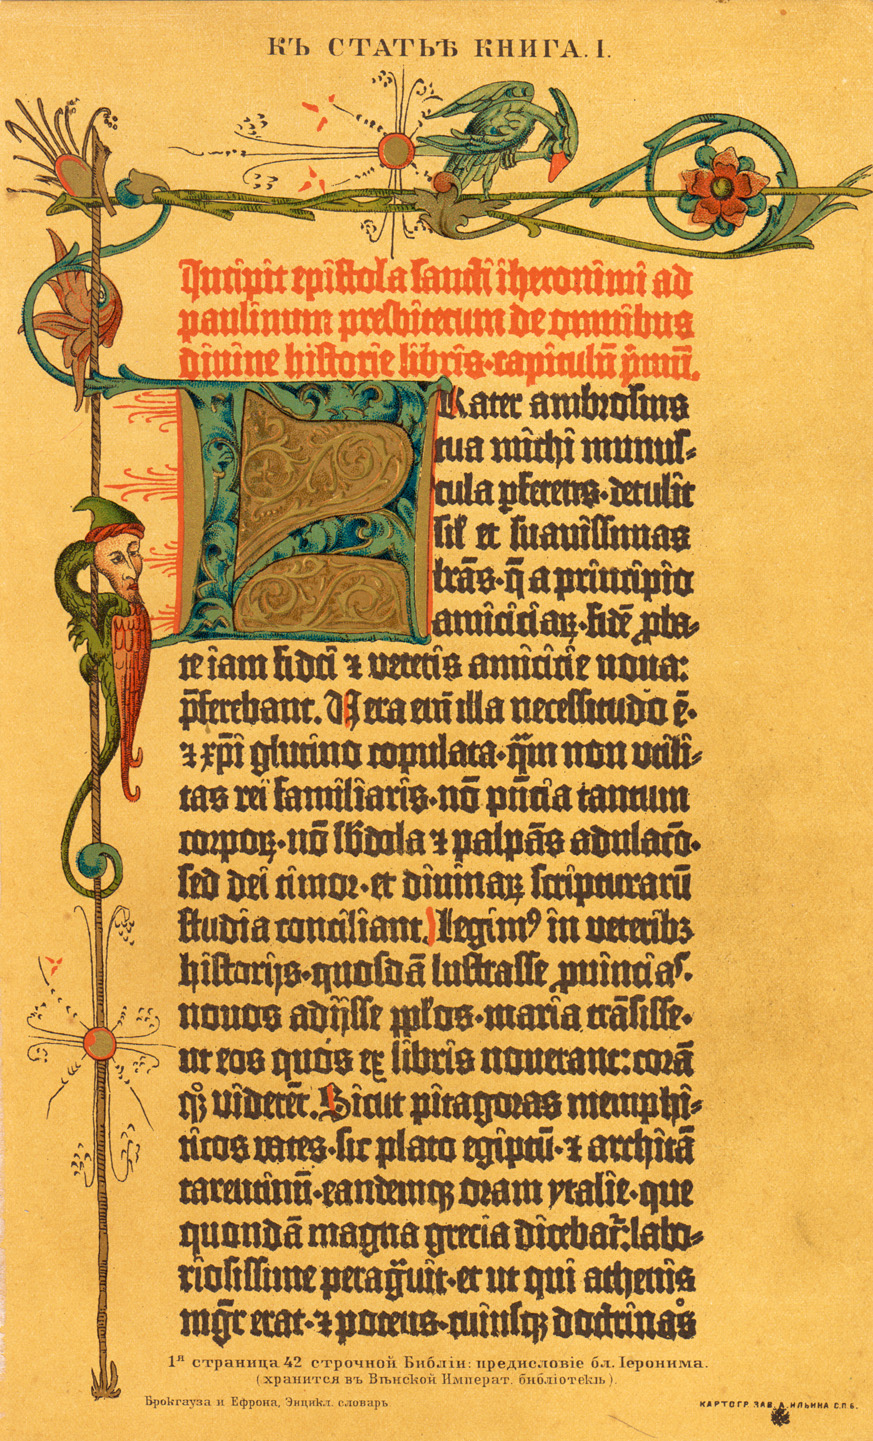 КЪ СТАТЬѢ КНИГА. I.
Incipit epistola sancti iheronimi ad
paulinum presbiterum de omnibus
divine historie libris·capitulū p̄mū.
FRater ambrosius
tua michi munus-
cula ꝑferens·detulit
sił et suavissimas
lr̄as·q̄ a principio
amiciciaꝝ·fidē ꝓba-
te iam fidei ⁊ veteris amicicie nova:
p̄ferebant. Vera em̄ illa necessitudo ē·
⁊ xp̄i glutino copulata·q̄m non utili-
tas rei familiaris·nō pn̄tia tantum
corpoꝝ·nō sb̄dola ⁊ palpās adulacō·
sed dei timor·et divinaꝝ scripturarū
studia conciliant. Legimꝰ in veteribꝫ
historijs·quosdā lustrasse ꝓvincias·
novos adijsse pp̄los·maria trāsisse·
ut eos quos ex libris noverant: corā
qꝫ viderēt. Sicut pitagoras memphi-
ticos vates·sic plato egiptū·⁊ architā
tarentinū·eandemqꝫ oram ytalie·que
quondā magna grecia dicebat̄: labo-
riosissime peragᵃvit·et ut qui athenis
mgr̄ erat·⁊ potens·cuiusqꝫ doctrinas
1ᴽ страница 42 строчной Библіи: предисловіе бл. Іеронима.
(хранится въ Вѣнской Императ. библіотекѣ).
Брокгауза и Ефрона, Энцикл. словарь.
КАРТОГР. ЗАВ. А. ИЛЬИНА С.П.Б.